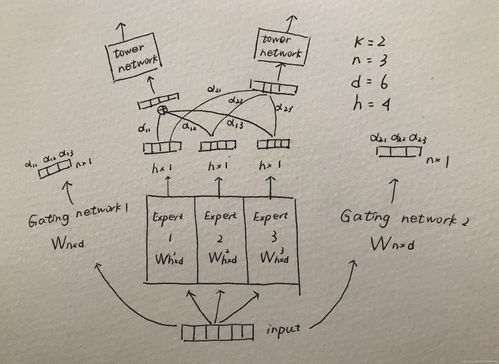 tower
network
tower
network
K = 2
n = 3
d = 6
h = 4
α₂₁
α₂₂
α₂₃
α₁₁
α₁₂
α₁₃
h×1
h×1
h×1
α₁₁ α₁₂ α₁₃
n×1
α₂₁ α₂₂ α₂₃
n×1
Gating network 1
Wn×d
Expert
1
W¹h×d
Expert
2
W²h×d
Expert
3
W³h×d
Gating network 2
Wn×d
input